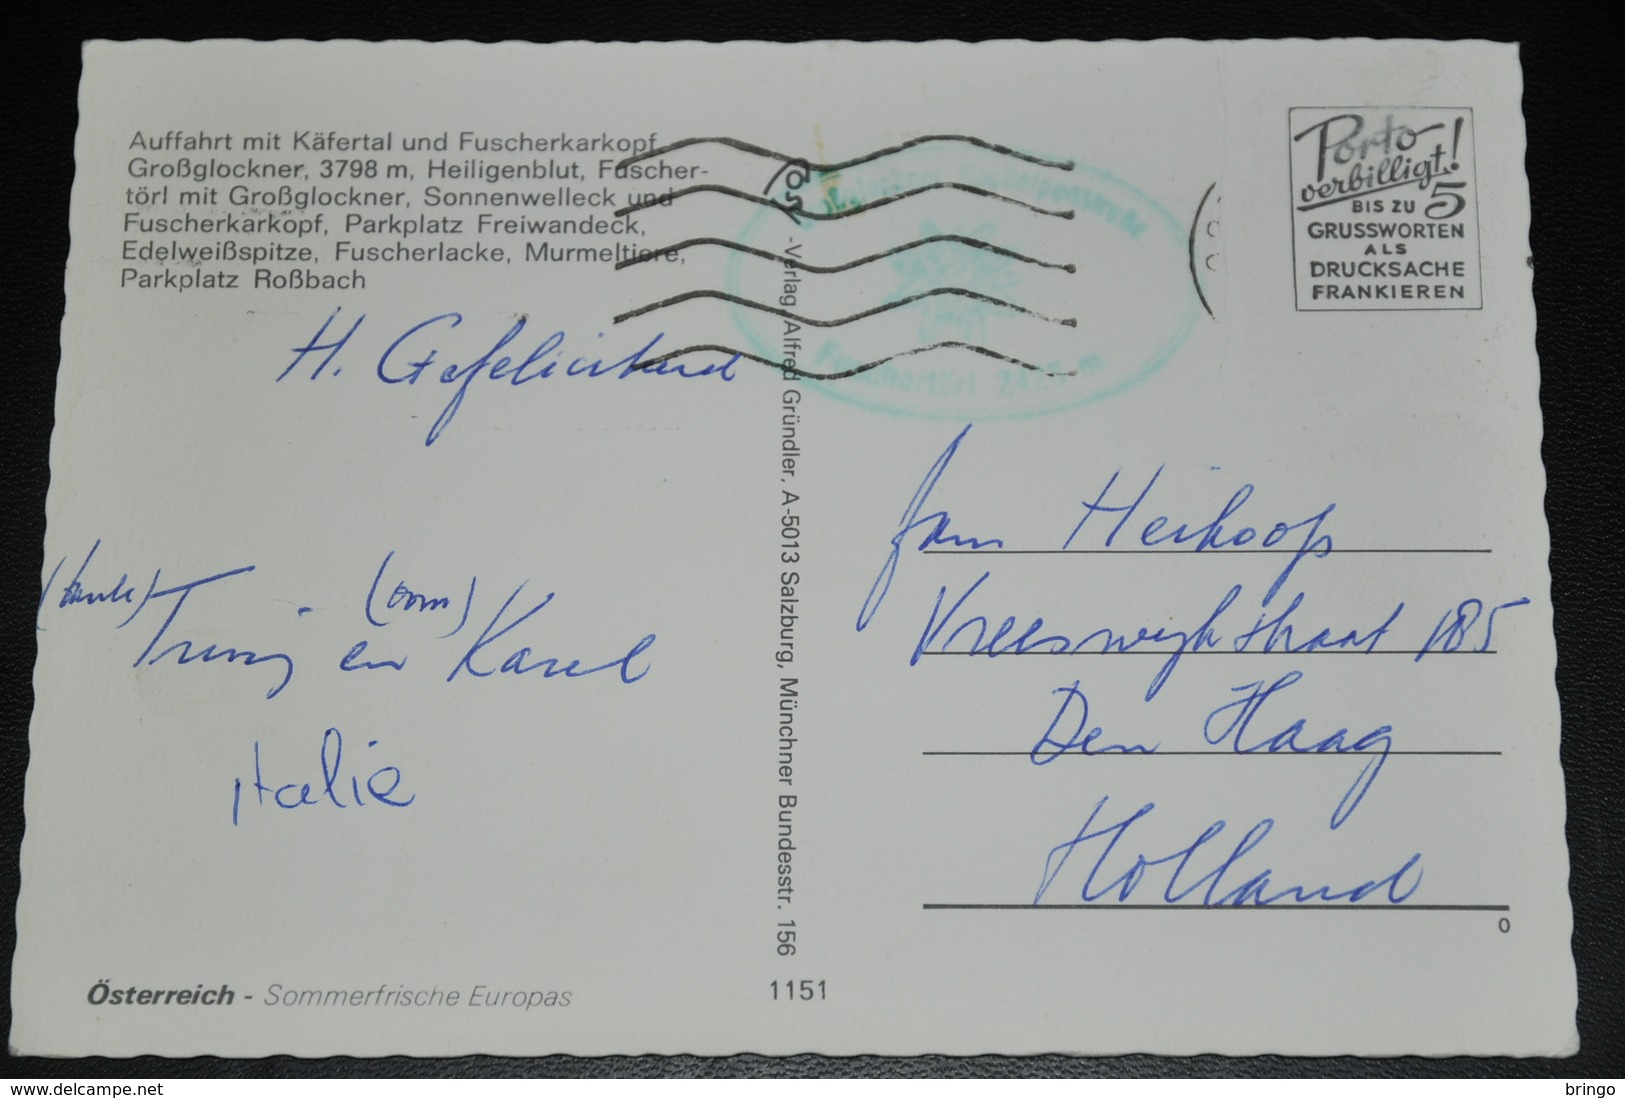 Auffahrt mit Käfertal und Fuscherkarkopf,
Großglockner, 3798 m, Heiligenblut, Fuscher-
törl mit Großglockner, Sonnenwelleck und
Fuscherkarkopf, Parkplatz Freiwandeck,
Edelweißspitze, Fuscherlacke, Murmeltiere,
Parkplatz Roßbach
H. Gefeliciteerd
(tante) (oom)
Truus en Karel
italie
Österreich - Sommerfrische Europas
-Verlag Alfred Gründler, A-5013 Salzburg, Münchner Bundesstr. 156
1151
Fuschertörl m
Porto
verbilligt!
BIS ZU 5
GRUSSWORTEN
ALS
DRUCKSACHE
FRANKIEREN
Fam Heikoop
Vreeswijkstraat 185
Den Haag
Holland
0
delcampe.net
bringo